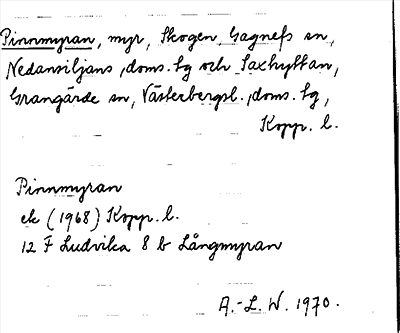 Pinnmyran, myr, Skogen, Gagnefs sn,
Nedansiljans, doms. tg och Saxhyttan,
Grangärde sn, Västerbergsl., doms. tg,
Kopp. l.
Pinnmyran
ek (1968) Kopp. l.
12 F Ludvika 8 b Långmyran
A.-L. W. 1970.